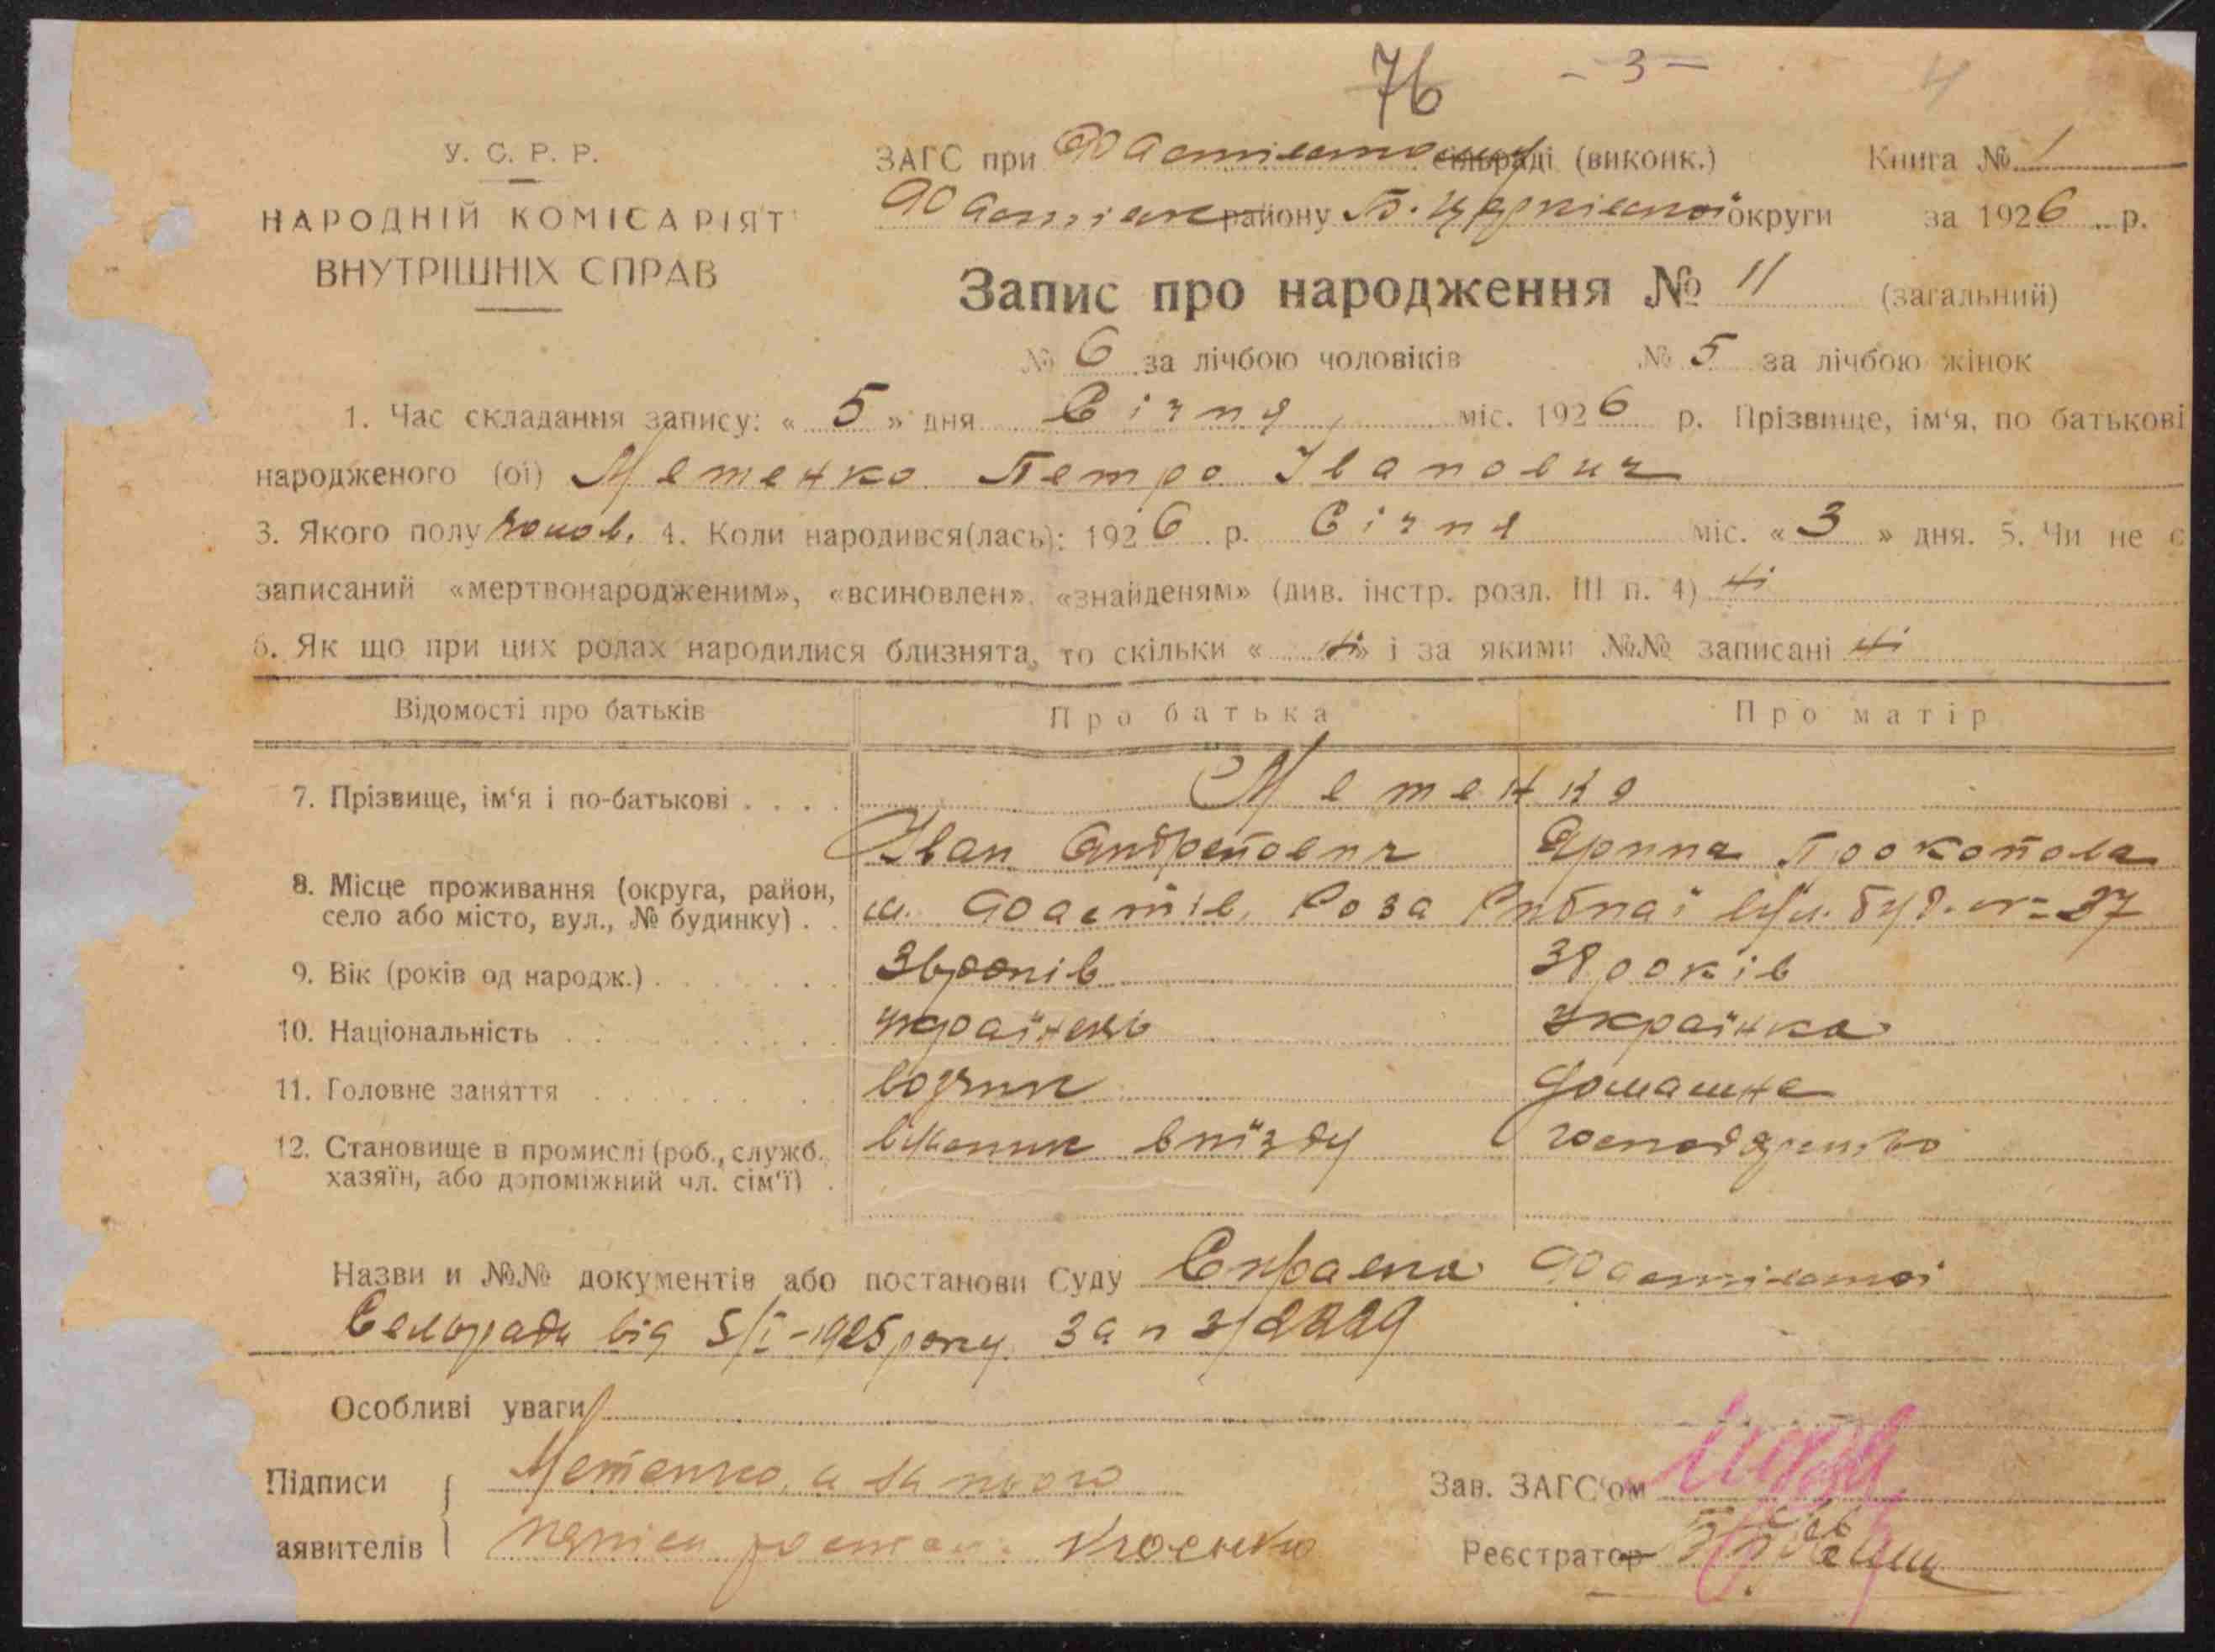 76 – 3 – 4
У. С. Р. Р.
НАРОДНІЙ КОМІСАРІЯТ
ВНУТРІШНІХ СПРАВ
ЗАГС при Фастівському сільраді (виконк.) Книга № 1
Фастівськ району Б. Церківської округи за 1926 р.
Запис про народження № 11 (загальний)
№ 6 за лічбою чоловіків № 5 за лічбою жінок
1. Час складання запису: « 5 » дня Січня міс. 1926 р. Прізвище, ім‘я, по батькові
народженого (ої) Метенко Петро Іванович
3. Якого полу чолов. 4. Коли народився(лась): 1926 р. Січня міс. « 3 » дня. 5. Чи не є
записаний «мертвонародженим», «всиновлен», «знайденям» (див. інстр. розд. III п. 4) ні
6. Як що при цих родах народилися близнята, то скільки « ні » і за якими №№ записані ні
Відомості про батьків Про батька Про матір
7. Прізвище, ім‘я і по-батькові . . . . Метенко
Іван Андреївич Ярина Прокопова
8. Місце проживання (округа, район,
село або місто, вул., № будинку) . . м. Фастів, Роза вул. буд. № 27
9. Вік (років од народж.) 36 років 38 років
10. Національність українець українка
11. Головне заняття Домашнє
12. Становище в промислі (роб., служб.,
хазяїн, або допоміжний чл. сім‘ї) . господарство
Назви и №№ документів або постанови Суду Справка Фастівської
Сельради від 5/I-1925 року за № 2229
Особливі уваги
Підписи Метенко, а за нього
аявителів
Зав. ЗАГС‘ом
Реєстратор